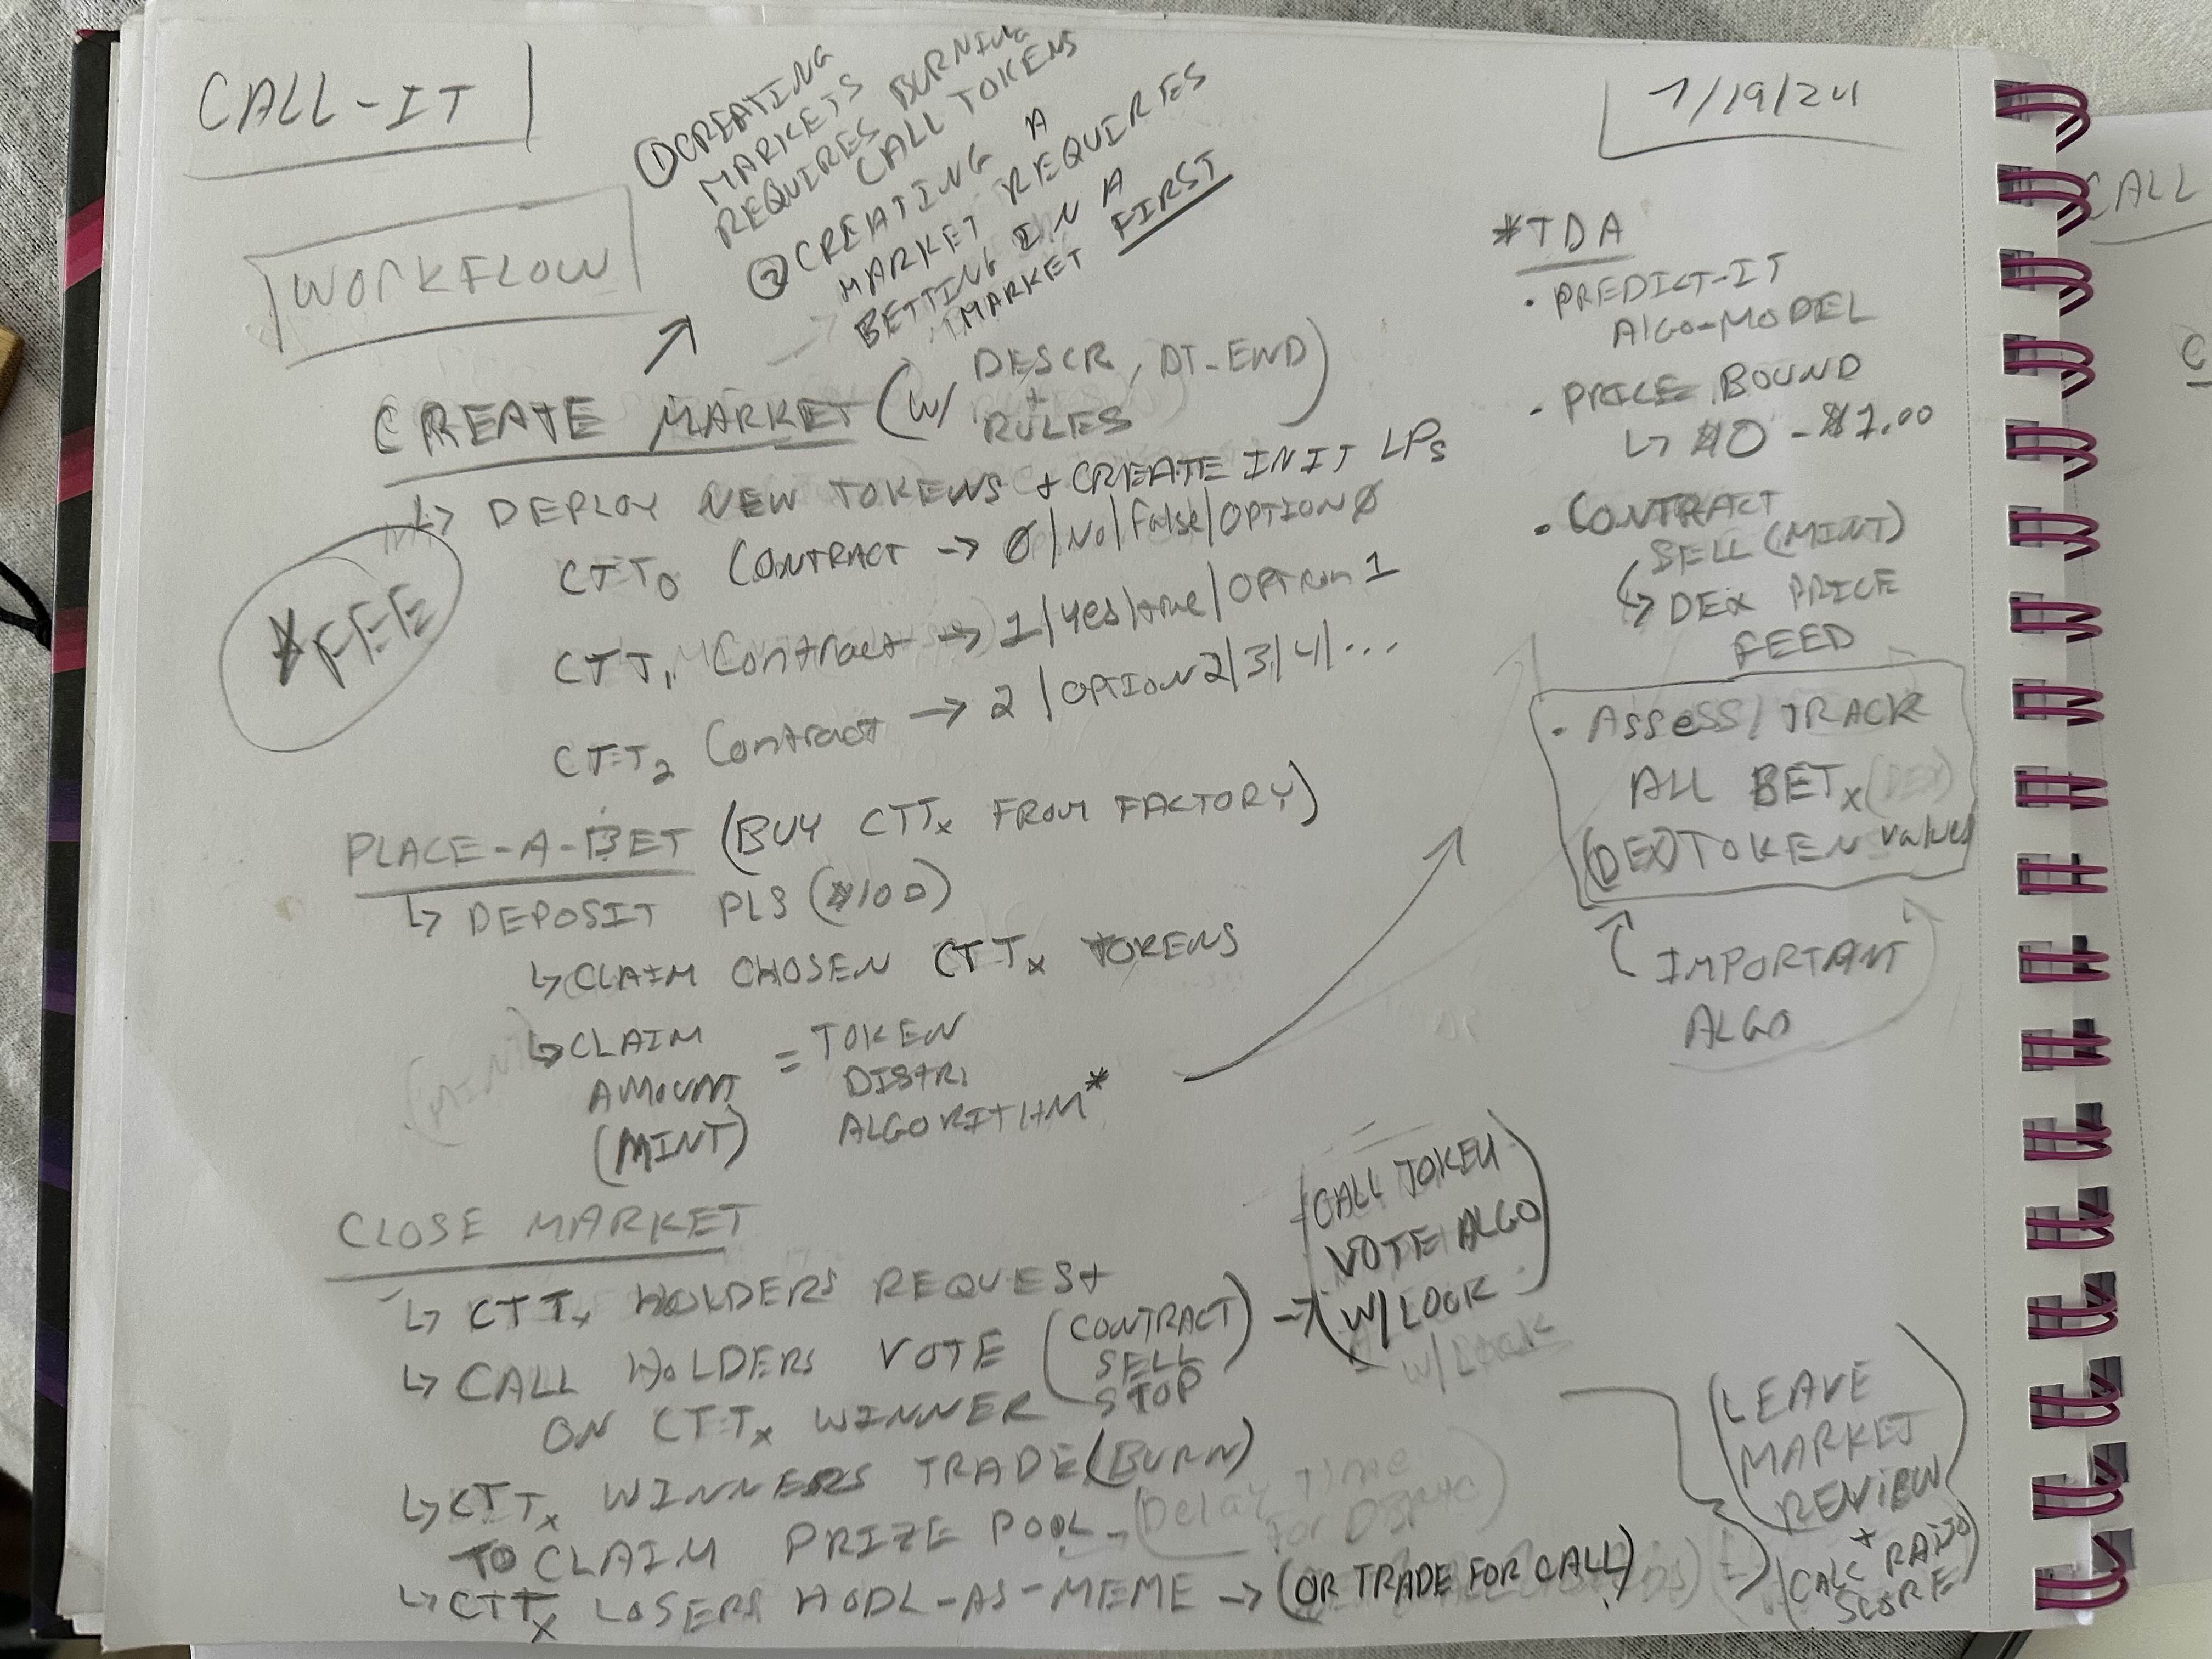 CALL-IT
7/19/24
WORKFLOW
① CREATING
MARKETS
REQUIRES BURNING
CALL TOKENS
② CREATING A
MARKET REQUIRES
BETTING IN A
MARKET FIRST
CREATE MARKET (W/ DESCR + RULES, DT-END)
↳ DEPLOY NEW TOKENS + CREATE INIT LPs
CTT0 CONTRACT → 0|NO|False|OPTION 0
CTT1 Contract → 1|Yes|true|OPTION 1
CTT2 Contract → 2|OPTION 2|3|4|...
*FEE
PLACE-A-BET (BUY CTTx FROM FACTORY)
↳ DEPOSIT PLS ($100)
↳ CLAIM CHOSEN CTTx TOKENS
↳ CLAIM AMOUNT (MINT) = TOKEN DISTRI ALGORITHM*
(MINT)
CLOSE MARKET
↳ CTTx HOLDERS REQUEST
↳ CALL HOLDERS VOTE (CONTRACT SELL STOP) →
ON CTTx WINNER
(CALL TOKEN
VOTE ALGO
W/ LOCK)
W/ Lock
↳ CTTx WINNERS TRADE (BURN)
TO CLAIM PRIZE POOL - (Delay Time
For
↳ CTTx LOSERS HODL-AS-MEME → (OR TRADE FOR CALL)
(LEAVE
MARKET
REVIEW
+
(CALC
SCORE)
*TDA
· PREDICT-IT
ALGO-MODEL
· PRICE BOUND
↳ $0 - $1.00
· CONTRACT
SELL (MINT)
↳ DEX PRICE
FEED
· Assess/TRACK
ALL BETx (DEX)
(DEX) TOKEN values
IMPORTANT
ALGO
CALL